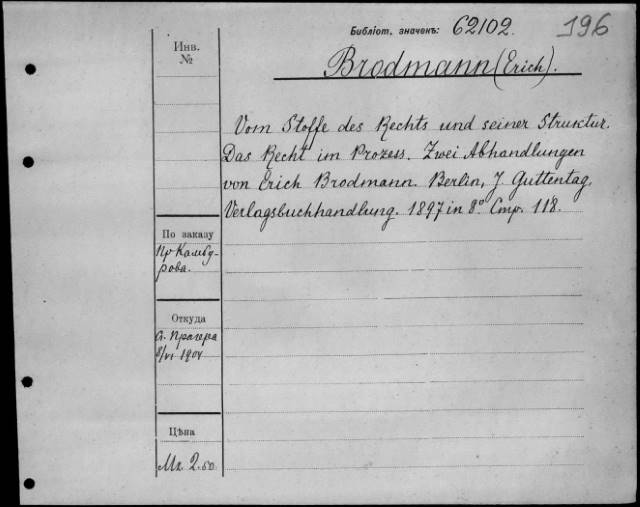 Библіот. значекъ: 62102. 196
Инв.
№
Brodmann (Erich).
Vom Stoffe des Rechts und seiner Struktur.
Das Recht im Prozess. Zwei Abhandlungen
von Erich Brodmann. Berlin, J Guttentag,
Verlagsbuchhandlung. 1897 in 8° Стр. 118.
По заказу
Пр Камбу-
рова.
Откуда
От. Прагера
8/VI 1904
Цѣна
Mk. 2.50.